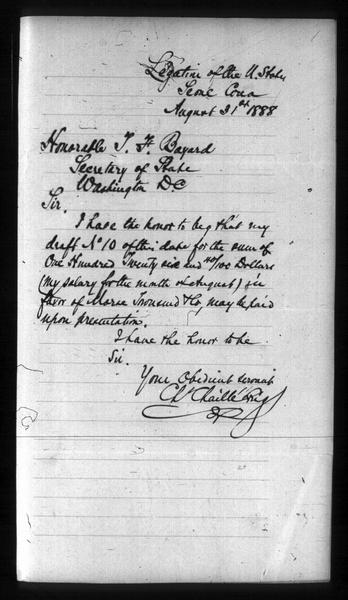 Legation of the U. States
Seoul Corea
August 31st 1888
Honorable T. F. Bayard
Secretary of State
Washington D.C
Sir.
I have the honor to beg that my
draft No 10 of this date for the sum of
One Hundred Twenty six and 40/100 Dollars
(my salary for the month of August) in
favor of Morse Townsend & Co, may be paid
upon presentation.
I have the honor to be
Sir.
Your Obedient servant
Ch. Chaillé Long